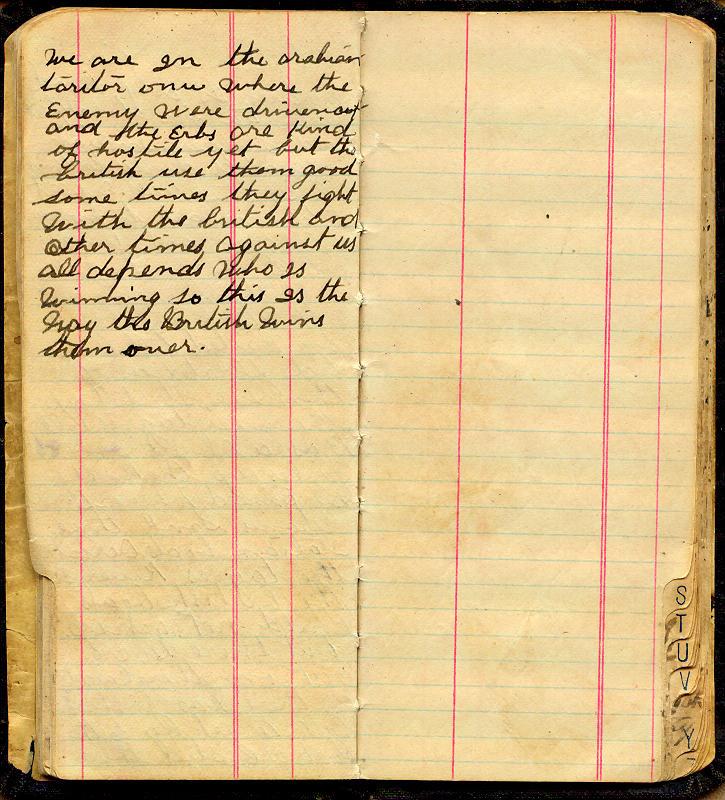 We are in the arabian
taritor onu where the
Enemy were drivenout
and the Erbs are kind
of hostile yet but the
british use them good
some times they fight
With the british and
Other times against us
all depends who is
Winning so this is the
Way the British Wins
them over.
S
T
U
V
Y